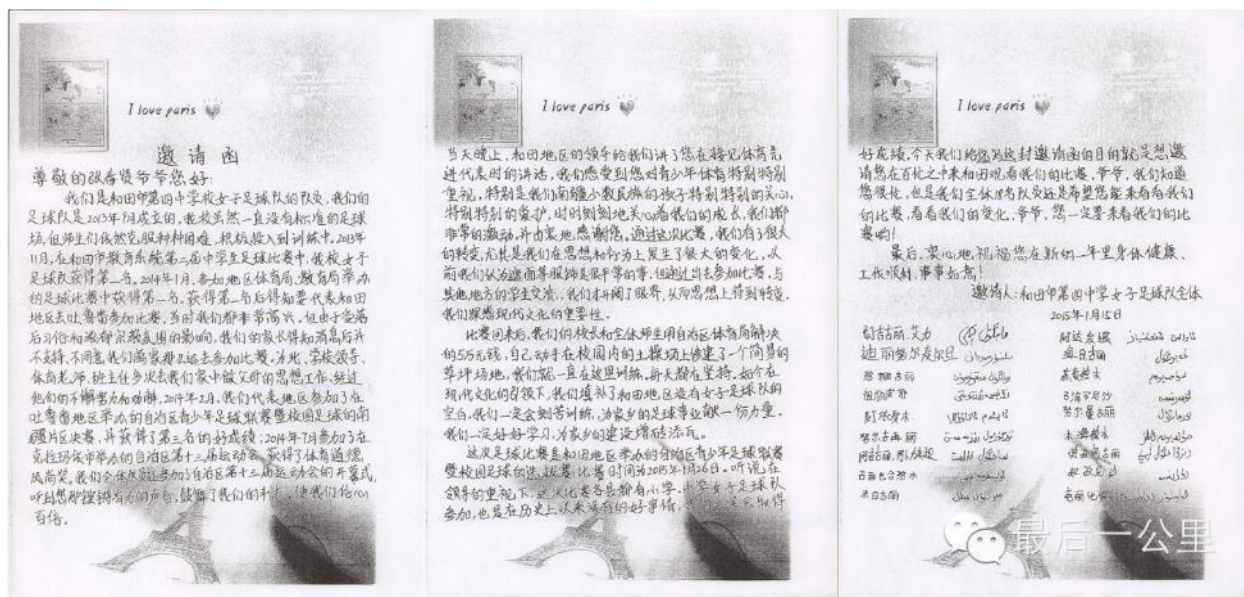 I love paris
邀请函
尊敬的改孝贤爷爷您好:
我们是和田市第四中学校女子足球队的队员,我们的
足球队是2013年10月成立的,我校虽然一直没有标准的足球
场,但师生们依然克服种种困难、积极投入到训练中。2013年
11月,在和田市教育系统第二届中学生足球比赛中,我校女子
足球队获得第一名。2014年1月,参加地区体育局、教育局举办
的足球比赛中获得第一名,获得第一名后得知要代表和田
地区去吐鲁番参加比赛,当时我们都非常高兴,但由于受落
后习俗和浓郁宗教氛围的影响,我们的家长得知消息后并
不支持,不同意我们离家那么远去参加比赛,为此,学校领导、
体育老师、班主任多次去我们家中做父母的思想工作,经过
他们的不懈努力和劝解,2014年2月,我们代表地区参加了在
吐鲁番地区举办的自治区青少年足球联赛暨校园足球的南
疆片区决赛,并获得了第三名的好成绩;2014年7月参加了在
克拉玛依市举办的自治区第十三届运动会,获得了体育道德
风尚奖,我们全体队员还参加了自治区第十三届运动会的开幕式,
听到您那铿锵有力的声音,鼓舞了我们的斗志,使我们信心
百倍。
I love paris
当天晚上,和田地区的领导给我们讲了您在接见体育先
进代表时的讲话,我们感受到您对青少年体育特别特别
重视,特别是我们南疆少数民族的孩子特别特别的关心,
特别特别的爱护,时时刻刻地关心着我们的成长,我们都
非常的激动,并由衷地感谢您。通过这次比赛,我们有了很大
的转变,尤其是我们在思想和行为上发生了很大的变化,以
前我们认为遮面等服饰是很平常的事,但通过出去参加比赛,与
其他地方的学生交流,我们才开阔了眼界,从而思想上得到转变,
我们深感现代文化的重要性。
比赛回来后,我们的校长和全体师生用自治区体育局解决
的5万元钱,自己动手在校园内的土操场上修建了一个简易的
草坪场地,我们就一直在这里训练,每天都在坚持。如今在
现代文化的引领下,我们填补了和田地区没有女子足球队的
空白,我们一定会刻苦训练,为家乡的足球事业献一份力量,
我们一定好好学习,为家乡的建设增砖添瓦。
这次足球比赛是和田地区举办的自治区青少年足球联赛
暨校园足球的选拔赛,比赛时间为2015年1月26日。听说在
领导的重视下,这次比赛各县都有小学、中学女子足球队
参加,也是在历史上以来没有的好事情,取得
I love paris
好成绩,今天我们给您写这封邀请函的目的就是想邀
请您在百忙之中来和田观看我们的比赛,爷爷,我们知道
您很忙,但是我们全体18名队员还是希望您能来看看我们
的比赛,看看我们的变化,爷爷,您一定要来看我们的比
赛哟!
最后,衷心地祝福您在新的一年里身体健康、
工作顺利、事事如意!
邀请人:和田市第四中学女子足球队全体
2015年1月15日
古丽.艾力
迪丽努尔麦尔旦
米日古丽
最后一公里